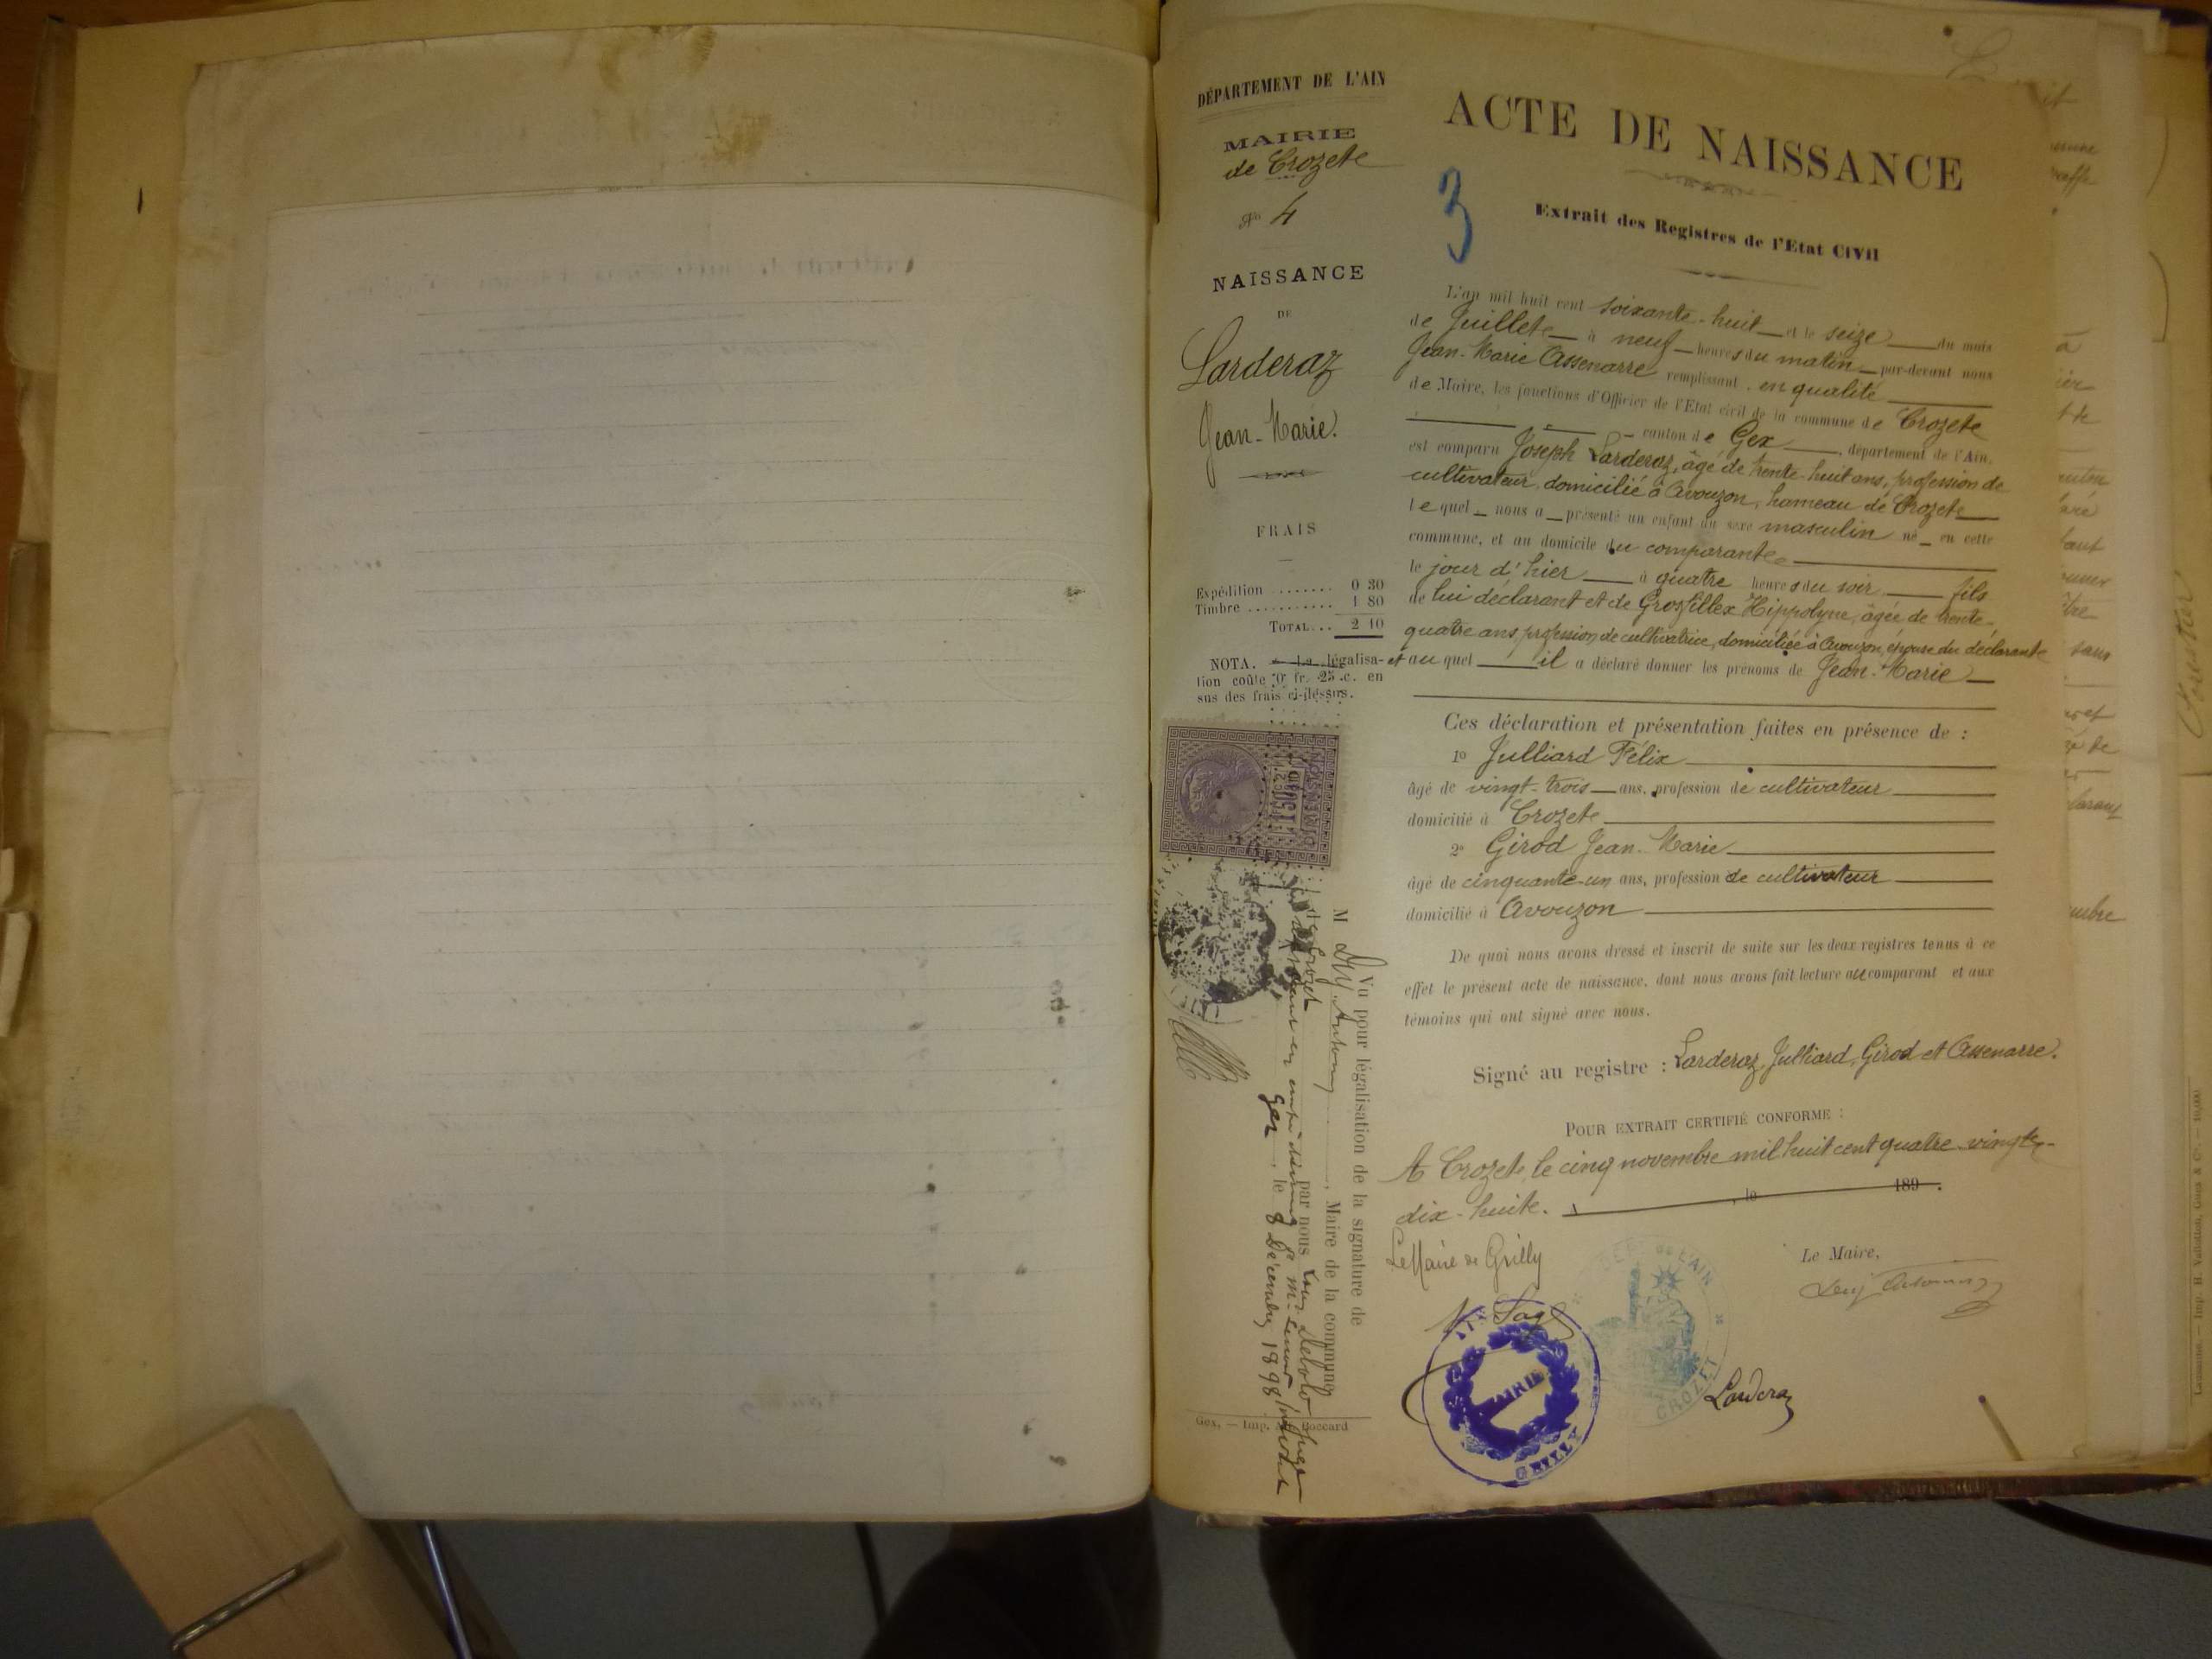 DÉPARTEMENT DE L'AIN
MAIRIE
de Crozete
No 4
NAISSANCE
DE
Larderaz
Jean-Marie.
FRAIS
Expédition ........ 0 30
Timbre ........... 1 80
TOTAL... 2 10
NOTA. — La légalisa-
tion coûte 0 fr. 25 c. en
sus des frais ci-dessus.
Vu pour légalisation de la signature de
M Dry Antony, Maire de la commune
de Crozet par nous Louis juge
Gex, le 8 Décembre 1898
Gex. — Imp. Boccard
ACTE DE NAISSANCE
3
Extrait des Registres de l'Etat Civil
L'an mil huit cent soixante-huit et le seize du mois
de Juillete à neuf heures du matin par-devant nous
Jean-Marie Assenarre remplissant en qualité
de Maire, les fonctions d'Officier de l'Etat civil de la commune de Crozete
canton de Gex, département de l'Ain,
est comparu Joseph Larderaz, âgé de trente-huit ans, profession de
cultivateur, domicilié à Avouzon, hameau de Crozete
lequel nous a présenté un enfant du sexe masculin né en cette
commune, et au domicile du comparante
le jour d'hier à quatre heures du soir fils
de lui déclarant et de Grosfillex Hippolyne, âgée de trente-
quatre ans, profession de cultivatrice, domiciliée à Avouzon, épouse du déclarante
et au quel il a déclaré donner les prénoms de Jean-Marie
Ces déclaration et présentation faites en présence de :
1o Julliard Félix
âgé de vingt-trois ans, profession de cultivateur
domicilié à Crozete
2o Girod Jean-Marie
âgé de cinquante-un ans, profession de cultivateur
domicilié à Avouzon
De quoi nous avons dressé et inscrit de suite sur les deux registres tenus à ce
effet le présent acte de naissance, dont nous avons fait lecture au comparant et aux
témoins qui ont signé avec nous.
Signé au registre : Larderaz, Julliard, Girod et Assenarre.
POUR EXTRAIT CERTIFIÉ CONFORME :
A Crozete, le cinq novembre mil huit cent quatre-vingte-
dix-huite. , le 189 .
Le Maire de Grilly
Le Maire,
DEPT DE L'AIN
CROZET
MAIRIE
GRILLY
Larderaz